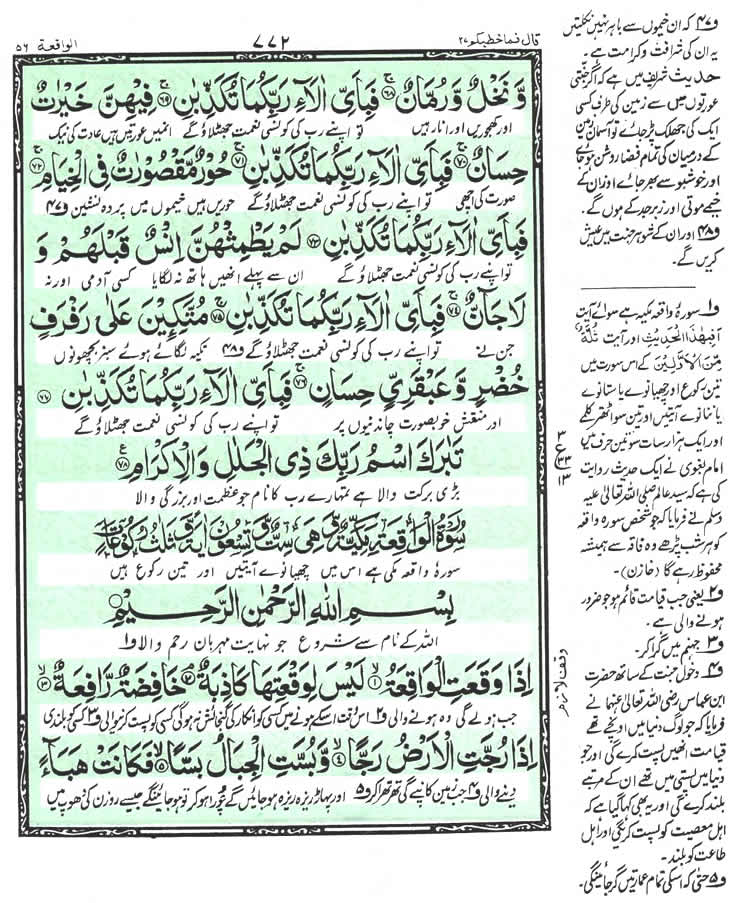 قال فما خطبکم ۲۷
۷۷۲
الواقعة ۵۶
وَّ نَخْلٌ وَّ رُمَّانٌ ۚ﴿۶۸﴾ فَبِاَیِّ اٰلَآءِ رَبِّکُمَا تُکَذِّبٰنِ ۚ﴿۶۹﴾ فِیْهِنَّ خَیْرٰتٌ
اور کھجوریں اور انار ہیں تو اپنے رب کی کونسی نعمت جھٹلاؤ گے انمیں عورتیں ہیں عادت کی نیک
حِسَانٌ ۚ﴿۷۰﴾ فَبِاَیِّ اٰلَآءِ رَبِّکُمَا تُکَذِّبٰنِ ۚ﴿۷۱﴾ حُوْرٌ مَّقْصُوْرٰتٌ فِی الْخِیَامِ ۚ﴿۷۲﴾
صورت کی اچھی تو اپنے رب کی کونسی نعمت جھٹلاؤ گے حوریں ہیں خیموں میں پردہ نشین و۴۷
فَبِاَیِّ اٰلَآءِ رَبِّکُمَا تُکَذِّبٰنِ ۚ﴿۷۳﴾ لَمْ یَطْمِثْهُنَّ اِنْسٌ قَبْلَهُمْ وَ
تو اپنے رب کی کونسی نعمت جھٹلاؤ گے ان سے پہلے انھیں ہاتھ نہ لگایا کسی آدمی اور نہ
لَا جَآنٌّ ۚ﴿۷۴﴾ فَبِاَیِّ اٰلَآءِ رَبِّکُمَا تُکَذِّبٰنِ ۚ﴿۷۵﴾ مُتَّکِـِٕیْنَ عَلٰی رَفْرَفٍ
جن نے تو اپنے رب کی کونسی نعمت جھٹلاؤ گے و۴۸ تکیہ لگائے ہوئے سبز بچھونوں
خُضْرٍ وَّ عَبْقَرِیٍّ حِسَانٍ ۚ﴿۷۶﴾ فَبِاَیِّ اٰلَآءِ رَبِّکُمَا تُکَذِّبٰنِ ﴿۷۷﴾
اور منقش خوبصورت چاندنیوں پر تو اپنے رب کی کونسی نعمت جھٹلاؤ گے
تَبٰرَکَ اسْمُ رَبِّکَ ذِی الْجَلٰلِ وَ الْاِکْرَامِ ﴿۷۸﴾ ع
بڑی برکت والا ہے تمہارے رب کا نام جو عظمت اور بزرگی والا
سُوْرَةُ الْوَاقِعَةِ مَکِّیَّةٌ وَّ هِیَ سِتٌّ وَّ تِسْعُوْنَ اٰیَةً وَّ ثَلٰثُ رُکُوْعَاتٍ
سورۂ واقعہ مکی ہے اس میں چھیانوے آیتیں اور تین رکوع ہیں
بِسْمِ اللّٰهِ الرَّحْمٰنِ الرَّحِیْمِ
اللہ کے نام سے شروع جو نہایت مہربان رحم والا و۱
اِذَا وَقَعَتِ الْوَاقِعَةُ ۙ﴿۱﴾ لَیْسَ لِوَقْعَتِهَا کَاذِبَةٌ ۘ﴿۲﴾ خَافِضَةٌ رَّافِعَةٌ ۙ﴿۳﴾
جب ہولے گی وہ ہونے والی و۲ اس وقت اسکے ہونے میں کسی کو انکار کی گنجائش نہ ہوگی کسی کو پست کرنیوالی و۳ کسی کو بلندی
اِذَا رُجَّتِ الْاَرْضُ رَجًّا ۙ﴿۴﴾ وَّ بُسَّتِ الْجِبَالُ بَسًّا ۙ﴿۵﴾ فَکَانَتْ هَبَآءً
دینے والی و۴ جب زمین کانپے گی تھر تھرا کر و۵ اور پہاڑ ریزہ ریزہ ہوجائیں گے چورا ہو کر تو ہو جائینگے جیسے روزن کی دھوپ میں
و۴۷ کہ ان خیموں سے باہر نہیں نکلتیں
یہ ان کی شرافت و کرامت ہے۔
حدیث شریف میں ہے کہ اگر جنتی
عورتوں میں سے زمین کی طرف کسی
ایک کی جھلک پڑ جائے تو آسمان زمین
کے درمیان کی تمام فضا روشن ہو جائے
اور خوشبو سے بھر جائے اور ان کے
خیمے موتی اور زبرجد کے ہوں گے۔
و۴۸ اور ان کے شوہر جنت میں عیش
کریں گے۔
و۱ سورۂ واقعہ مکیہ ہے سوائے آیت
اَفَبِهٰذَا الْحَدِیْثِ اور آیت ثُلَّةٌ
مِّنَ الْاَوَّلِیْنَ کے اس سورت میں
تین رکوع اور چھیانوے یا ستانوے
یا ننانوے آیتیں اور تین سو اٹھتر کلمے
اور ایک ہزار سات سو تین حرف ہیں
امام بغوی نے ایک حدیث روایت
کی ہے کہ سید عالم صلی اللہ تعالیٰ علیہ
وسلم نے فرمایا کہ جو شخص سورہ واقعہ
کو ہر شب پڑھے وہ فاقہ سے ہمیشہ
محفوظ رہے گا (خازن)۔
و۲ یعنی جب قیامت قائم ہو جو ضرور
ہونے والی ہے۔
و۳ جہنم میں گرا کر۔
و۴ دخول جنت کے ساتھ حضرت
ابن عباس رضی اللہ تعالیٰ عنہما نے
فرمایا کہ جو لوگ دنیا میں اونچے تھے
قیامت انھیں پست کرے گی اور جو
دنیا میں پستی میں تھے ان کے مرتبے
بلند کرے گی اور یہ بھی کہا گیا ہے کہ
اہل معصیت کو پست کریگی اور اہل
طاعت کو بلند۔
و۵ حتیٰ کہ اسکی تمام عمارتیں گر جائینگی۔
۳
ع
۳۳
۱۳
وقف لازم